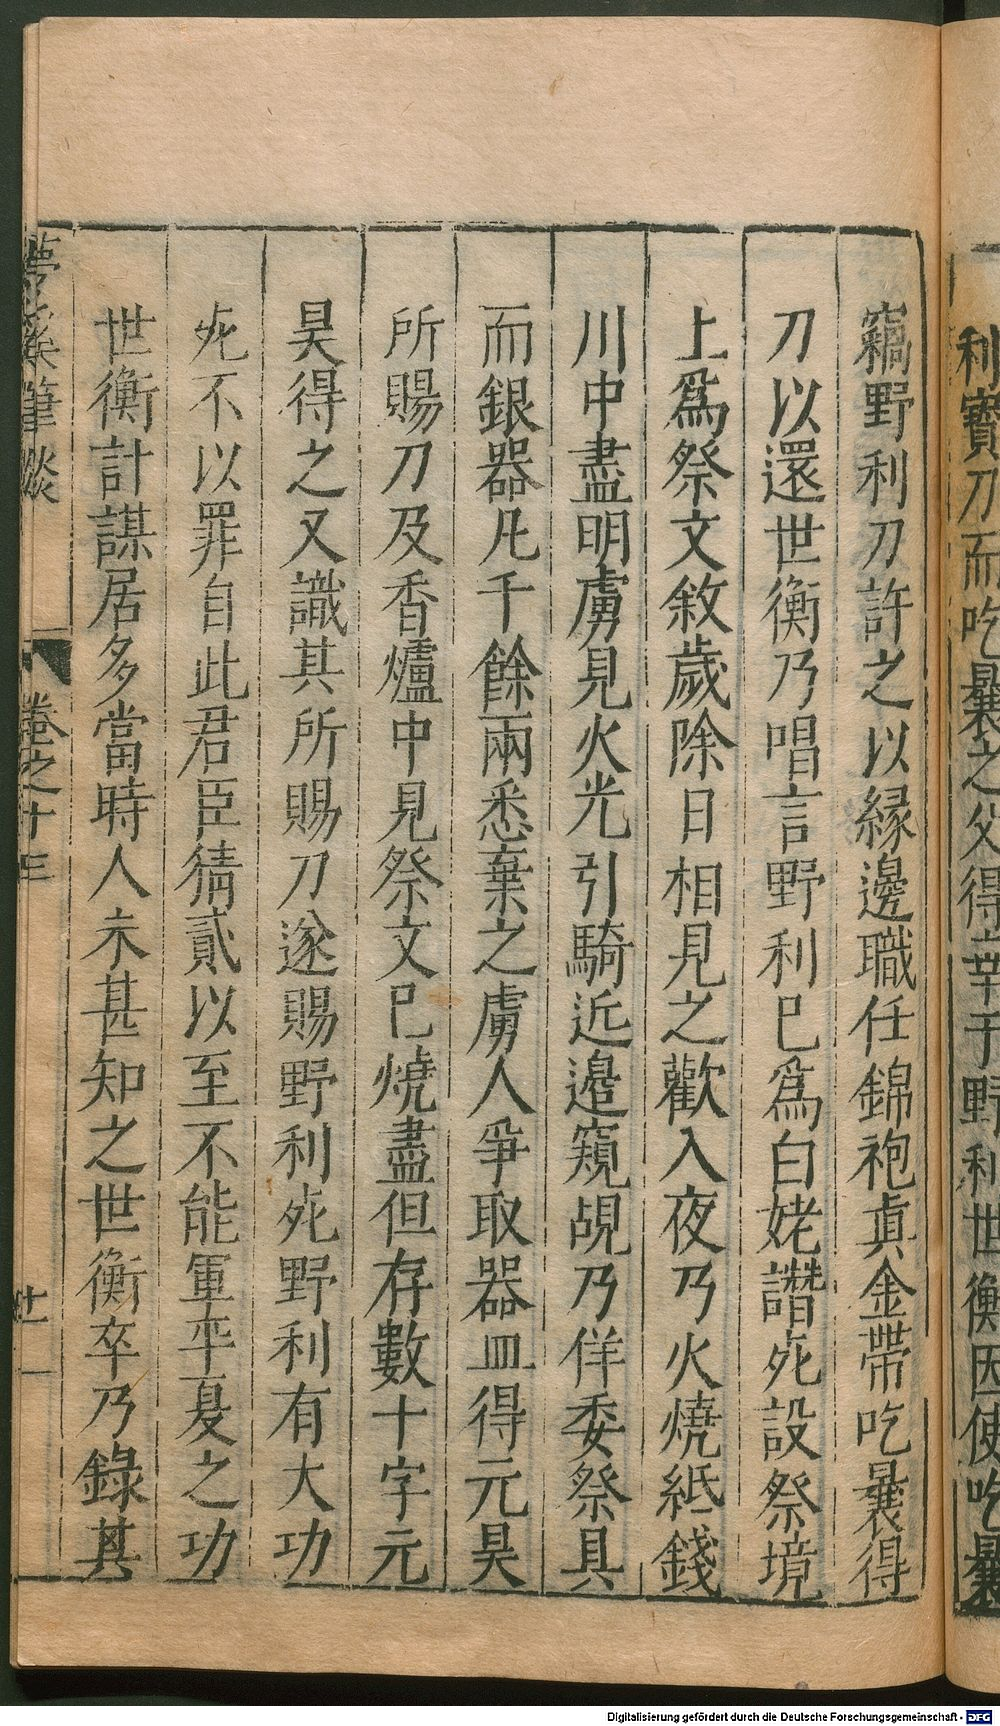 利寳刀而吃曩之父得幸于野利世衡因使吃曩
竊野利刀許之以緣邊職任錦袍眞金帶吃曩得
刀以還世衡乃唱言野利已爲白姥譛死設祭境
上爲祭文敘歲除日相見之歡入夜乃火燒紙錢
川中盡明虜見火光引騎近邉窺覘乃佯委祭具
而銀器凡千餘兩悉棄之虜人爭取器皿得元昊
所賜刀及香爐中見祭文已燒盡但存數十字元
昊得之又識其所賜刀遂賜野利死野利有大功
死不以罪自此君臣猜貳以至不能軍平夏之功
世衡計謀居多當時人未甚知之世衡卒乃錄其
夢溪筆談
卷之十三
十一
Digitalisierung gefördert durch die Deutsche Forschungsgemeinschaft - DFG